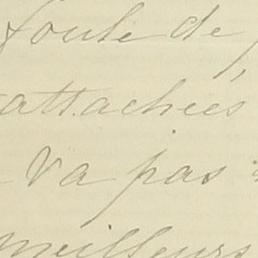 foule de
attachées
va pas
meilleurs